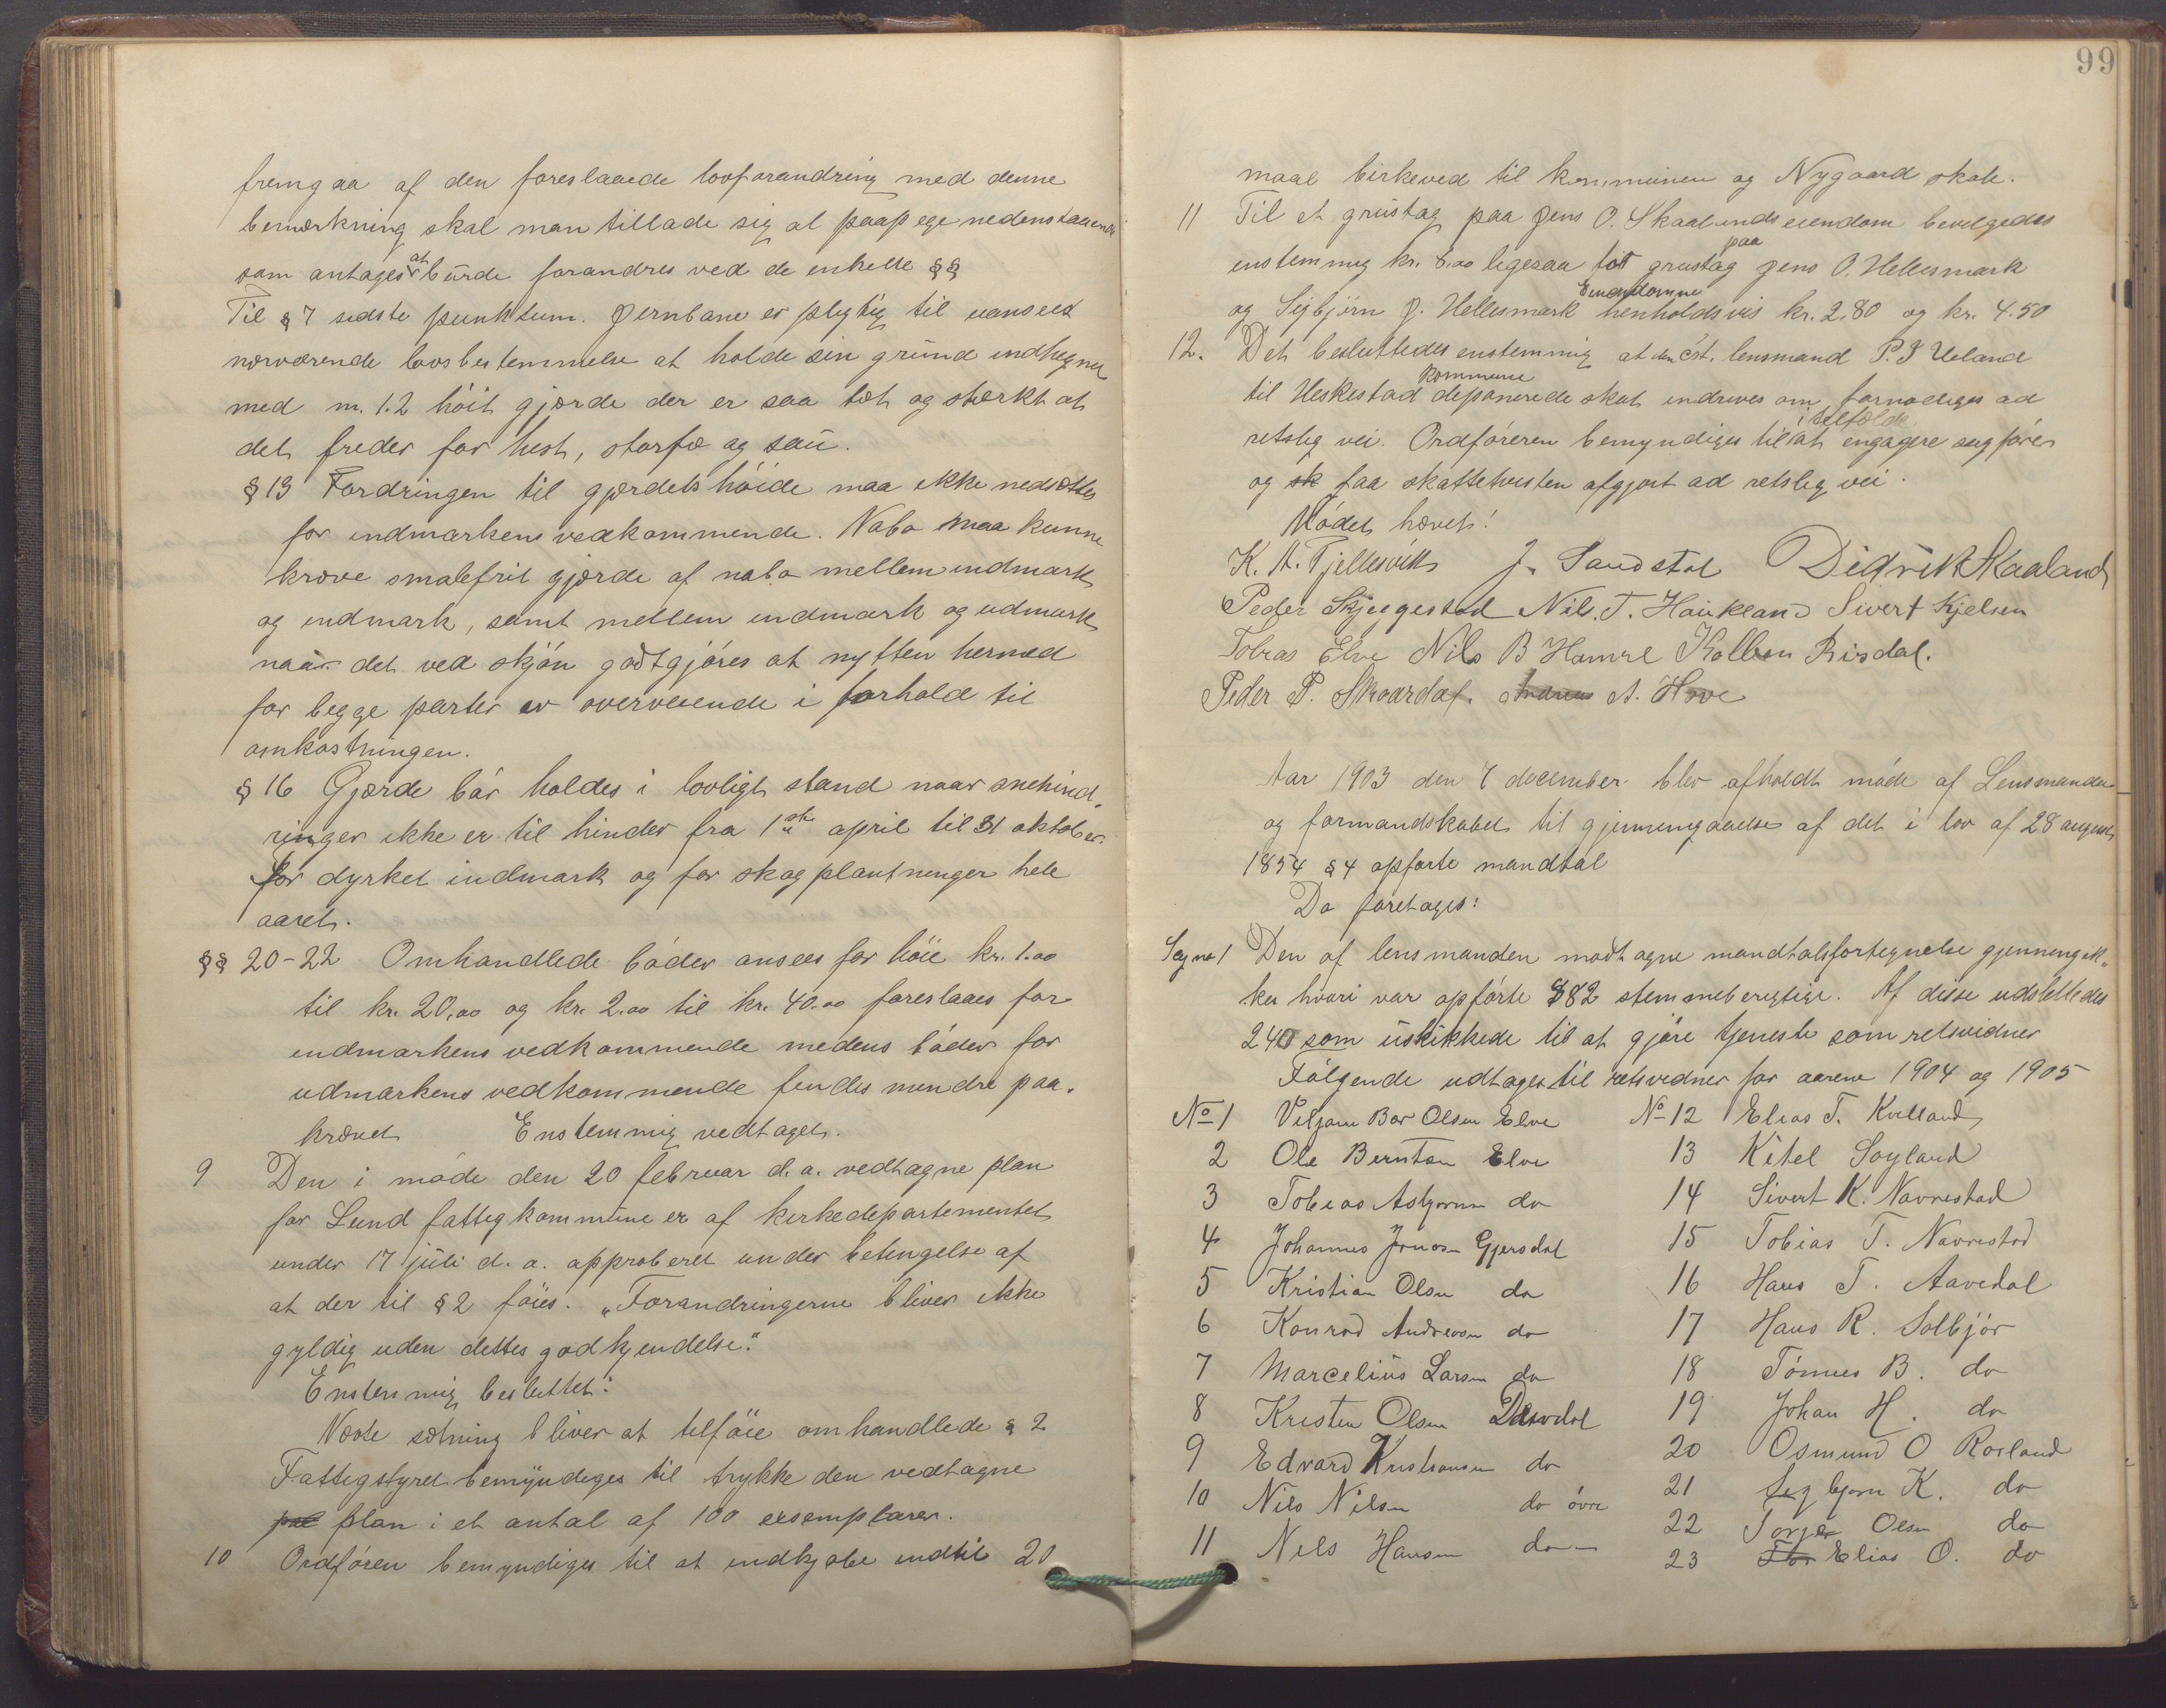 fremgaa af den foreslaaede lovforandring med denne
bemærkning skal man tillade sig at paapege nedenstaaende
som antages at burde forandres ved de enkelte §§
Til § 7 sidste punktum. Jernbane er pligtig til uanseet
nærværende lovsbestemmelse at holde sin grund indhegnet
med m. 1.2 höit gjærde der er saa tæt og stærkt at
det freder for hest, storfæ og sau.
§ 13 Fordringen til gjærdets höide maa ikke nedsættes
for indmarkens vedkommende. Nabo maa kunne
kræve smalefrit gjærde af nabo mellem indmark
og indmark, samt mellem indmark og udmark
naar det ved skjön godtgjöres at nytten hermed
for begge parter er overveiende i forhold til
omkostningen.
§ 16 Gjærde bör holdes i lovligt stand naar snehind,
ringer ikke er til hinder fra 1ste april til 31 oktober.
for dyrket indmark og for skogplantninger hele
aaret.
§§ 20-22 Omhandlede böder ansees for höie kr. 1.00
til kr. 20.00 og kr. 2.00 til kr. 40.00 foreslaaes for
indmarkens vedkommende medens böder for
udmarkens vedkommende findes mindre paa.
krævet Enstemmig vedtaget.
9 Den i möde den 20 februar d. a. vedtagne plan
for Lund fattigkommune er af kirkedepartementet
under 17 juli d. a. approberet under betingelse af
at der til § 2 föies. „Forandringerne bliver ikke
gyldig uden dettes godkjendelse."
Enstemmig besluttet:
Næste sætning bliver at tilföie omhandlede § 2
Fattigstyret bemyndiges til trykke den vedtagne
plan i et antal af 100 exsemplarer.
10 Ordfören bemyndiges til at indkjøbe indtil 20
99
maal birkeved til kommunen og Nygaard skole.
11 Til et grustag paa Jens O. Skaalands eiendom bevilgedes
enstemmig kr. 8.00 ligesaa for grustag paa Jens O. Hellesmark
og Sigbjörn J. Hellesmark Eiendomme henholdsvis kr. 2.80 og kr. 4.50
12. Det besluttedes enstemmig at den cst. lensmand P. J Ueland
til Heskestad kommune deponerede skat indrives om fornødiges ad
retslig vei. Ordföreren bemyndiges til i tilfælde at engagere sagförer
og sk faa skattetvisten afgjort ad retslig vei.
Mödet hævet!
K. A. Fjellesvik J. Sandstøl Didrik Skaaland
Peder Skjeggestad Nils. T. Haukland Sivert Kjelsen
Tobias Elve Nils B Hamre Kolben Risdal.
Peder P. Skaardal. Andreas A. Hove
Aar 1903 den 7 december blev afholdt möde af Lensmanden
og formandskabet til gjennemgaaelse af det i lov af 28 august
1854 § 4 opførte mandtal
Da foretages:
Sag no 1 Den af lensmanden modtagne mandtalsfortegnelse gjennemgik,
kes hvori var opförte 382 stemmeberegtige. Af disse udslettedes
240 som uskikkede til at gjöre tjeneste som retsvidner
Fölgende udtages til retsvidner for aarene 1904 og 1905
No 1 Viljam Bar Olsen Elve
2 Ole Berntsen Elve
3 Tobias Asbjornsen do
4 Johannes Jonasen Gjersdal
5 Kristian Olsen do
6 Konrad Andreasen do
7 Marcelius Larsen do
8 Kristen Olsen
9 Edvard Kristiansen do
10 Nils Nilsen do övre
11 Nils Hansen do
No 12 Elias T. Kvelland
13 Kitel Soyland
14 Sivert K. Navrestad
15 Tobias T. Navrestad
16 Hans T. Aavedal
17 Hans R. Solbjör
18 Tönnes B. do
19 Johan H. do
20 Osmund O Rosland
21 Sigbjorn K. do
22 Torger Olsen do
23 Elias O. do